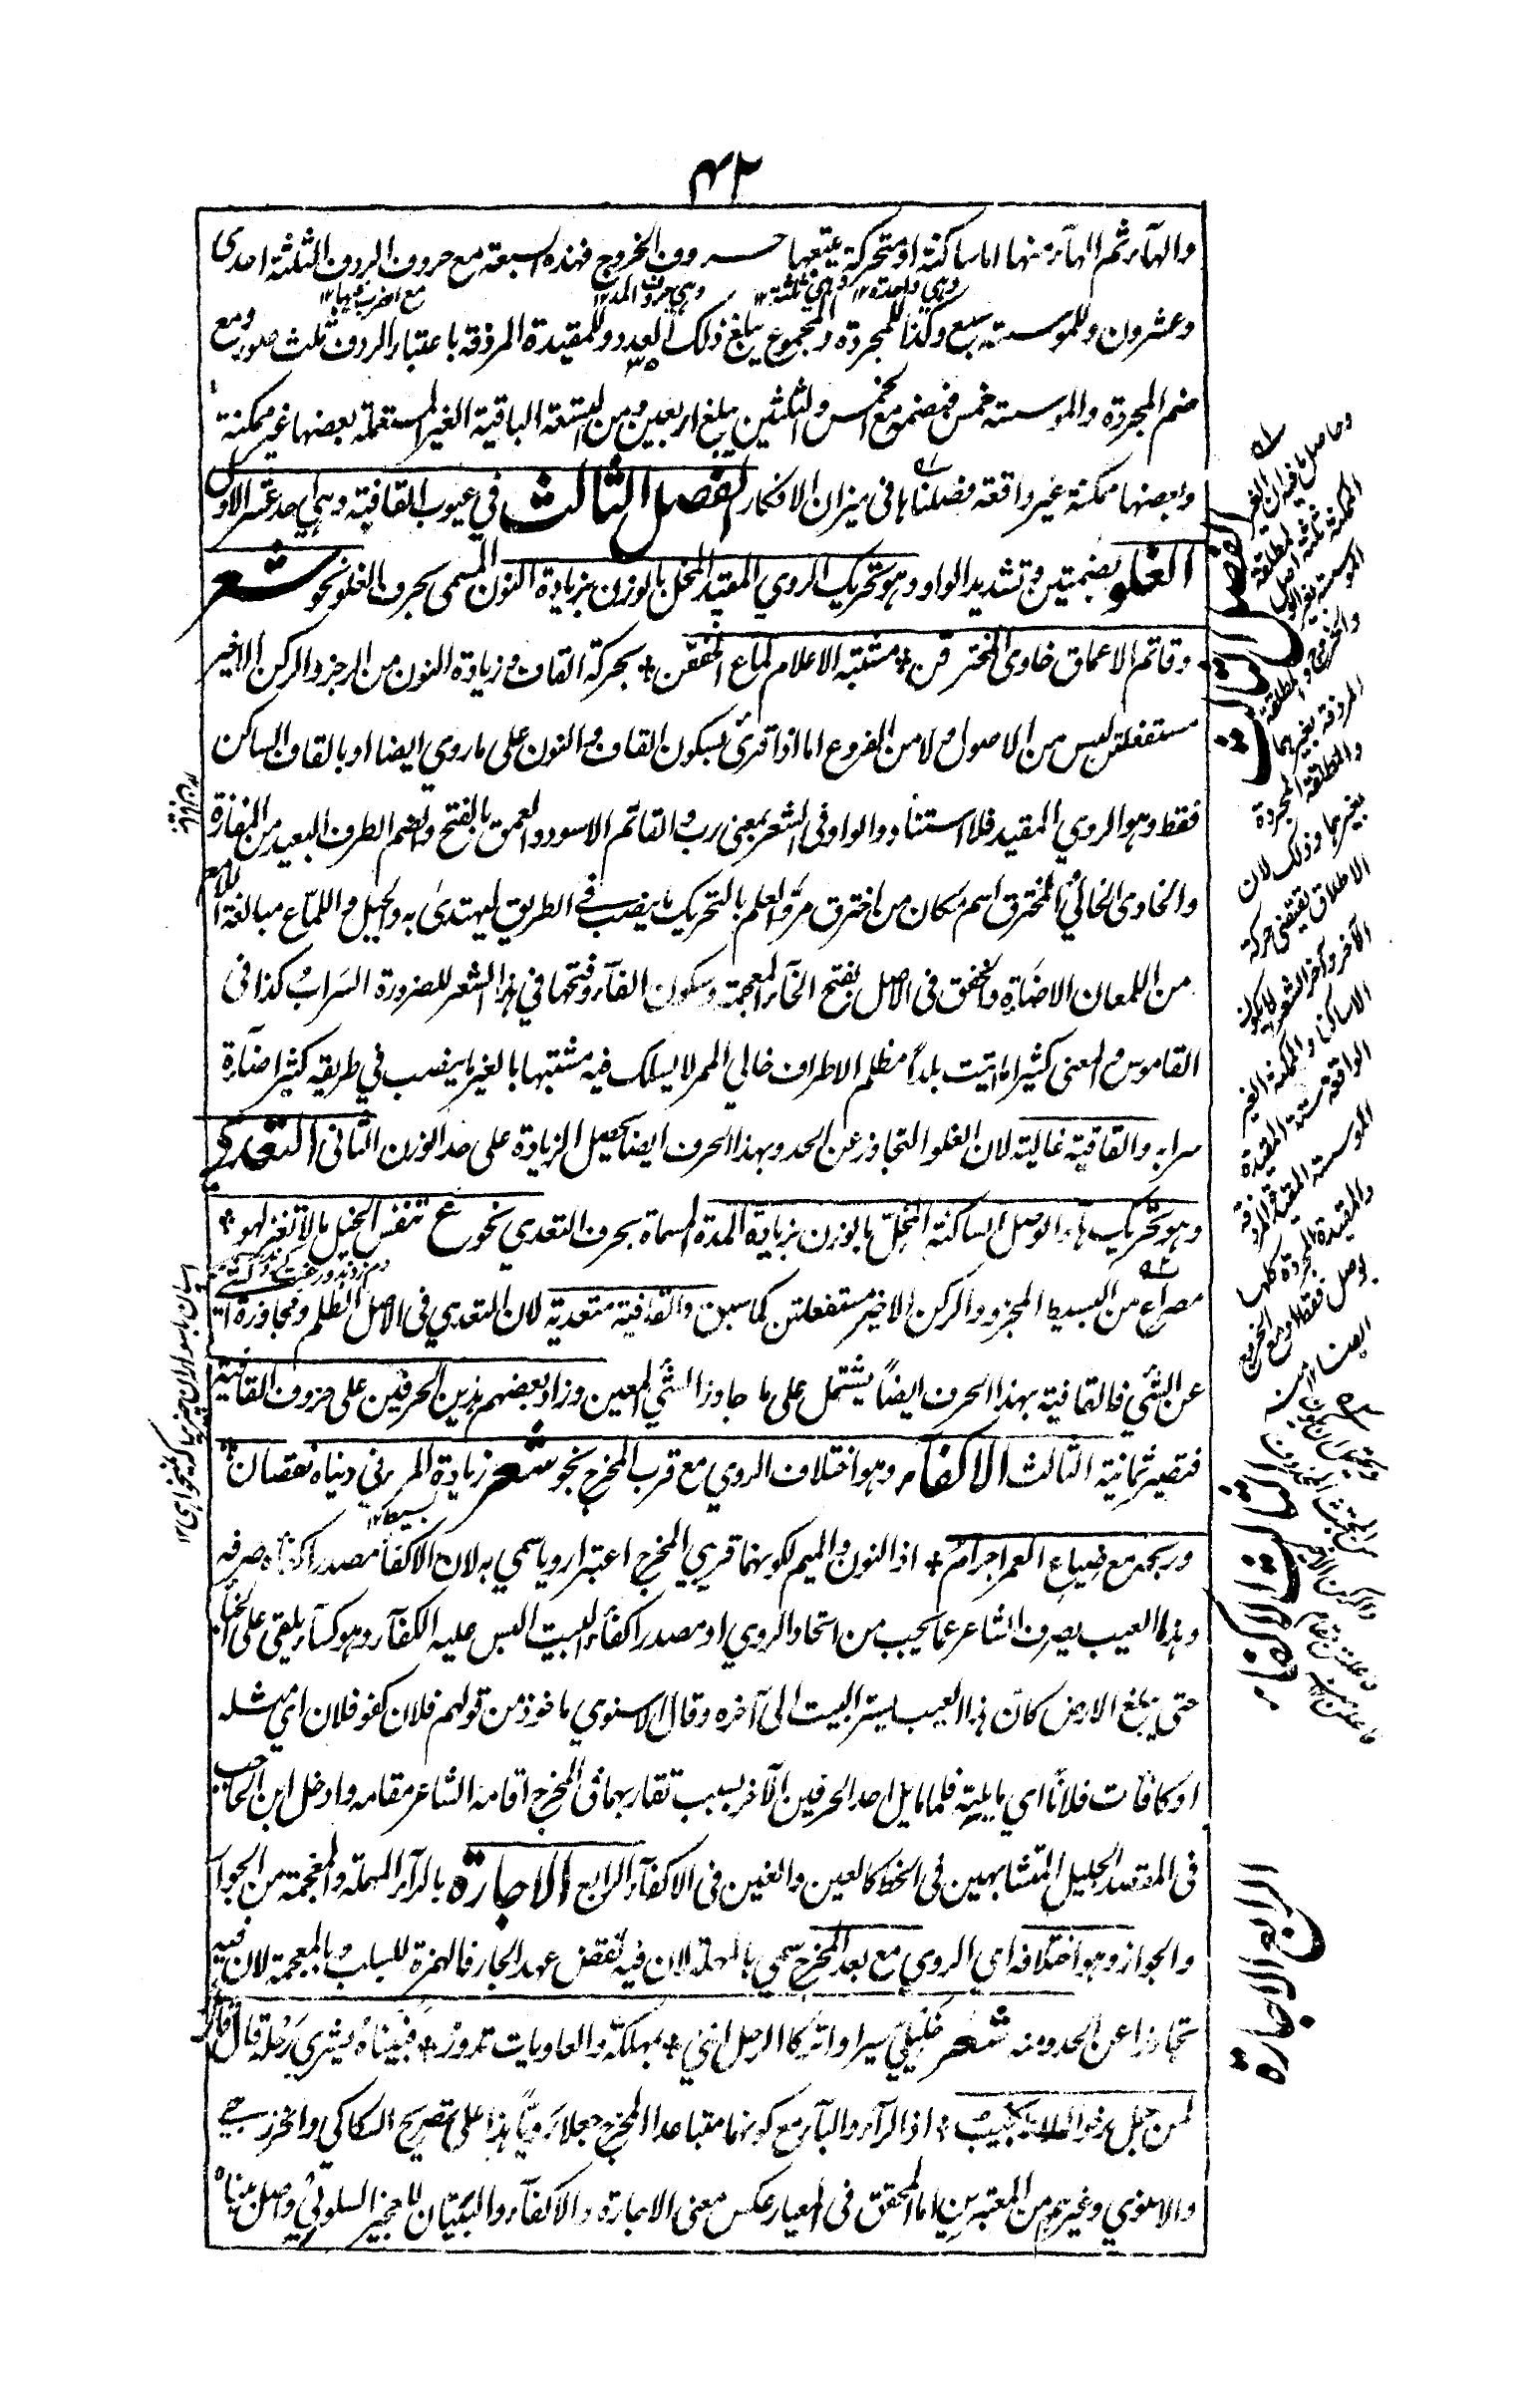 ٤٢
والهآء ثم الهآء منها اما ساكنة او متحركة يتبعها حروف الخروج فهذه السبعة مع حروف الردف الثلثة احدى
وهي واحدة ١٢ وهي ثلثة ١٢ وهي حروف المد ١٢ مع اضرب فيها ١٢
وعشرون وللموسسة سبع وكذا للمجردة والمجموع يبلغ ذلك العدد وللمقيدة المردفة باعتبار الردف ثلث صور ومع
٣٥
ضم المجردة والموسسة خمس فيضمو مع الخمس والثلثين يبلغ اربعين ومن التسعة الباقية الغير المستعملة بعضها غير ممكنة
وبعضها ممكنة غير واقعة فصلناها فى ميزان الافكار الفصل الثالث في عيوب القافية وهي احد عشر الاول
الغلو بضمتين وتشديد الواو وهو تحريك الروي المقيد المخل بالوزن بزيادة النون المسمى بحرف الغلو نحو شعر
وقاتم الاعماق خاوى المخترقن + مشتبه الاعلام لماع الخفقن + بحركة القاف وزيادة النون من الرجز والركن الاخير
مستفعلتن ليس من الاصول ولا من الفروع اما اذا قرئ بسكون القاف والنون على ما روي ايضا او بالقاف الساكن
فقط وهو الروي المقيد فلا استناد والواو فى الشعر بمعنى رب والقاتم الاسود والعمق بالفتح والضم الطرف البعيد من المفازة
والخاوى الخالي والمخترق اسم مكان من اخترق مرّ والعلم بالتحريك ما ينصب في الطريق ليهتدى به والجبل واللماع مبالغة اللامع
من اللمعان الاضآءة والخفق فى الاصل بفتح الخآء المعجمة وسكون الفآء وفتحها في هذا الشعر للضرورة السَراب كذا فى
القاموس والمعنى كثيرا ما اتيت بلدًا مظلم الاطراف خالي الممر لا يسلك فيه مشتبها بالغير ما ينصب في طريقه كثير اضآءة
سرابه والقافية غالية لان الغلو التجاوز عن الحد وبهذا الحرف ايضا يحصل الزيادة على حد الوزن الثانى التعدي
وهو تحريك هآء الوصل الساكنة المخلّ بالوزن بزيادة المدة المسماة بحرف التعدي نحو ع تنفس الخيل ما لا تغزلهو +
مصراع من البسيط المجزو والركن الاخير مستفعلتن كما سبق والقافية متعدية لان التعدي فى الاصل الظلم ومجاوزة
عن الشئ فالقافية بهذا الحرف ايضًا يشتمل على ما جاوز الشئ المعين وزاد بعضهم هذين الحرفين على حروف القافية
فتصير ثمانية الثالث الاكفآء وهو اختلاف الروي مع قرب المخرج نحو شعر زيادة المرء في دنياه نقصان +
بسيط ١٢
وربحه مع ضياع العمر اجرام + اذ النون والميم لكونهما قريبي المخرج اعتبرا رويا سمي به لان الاكفآء مصدر اكفأه صرفه
وهذا العيب يصرف الشاعر عما يجب من اتحاد الروي او مصدر اكفأء البيت البس عليه الكفآء وهو كسآء يلقى على الخبآء
حتى يبلغ الارض كان هذا العيب يستر البيت الى آخره وقال الاسنوي ماخوذ من قولهم فلان كفو فلان اي مثله
او كافأت فلانًا اي مايلته فلما مايل احد الحرفين الآخر بسبب تقاربهما فى المخرج اقامه الشاعر مقامه وادخل ابن الحاجب
فى المقصد الجليل المتشابهين فى الخط كالعين والغين فى الاكفآء الرابع الاجارة بالرآء المهملة والمعجمة من الجوار
والجواز وهو اختلافه اي الروي مع بعد المخرج سمي بالمهملة لان فيه نقض عهد الجار فالهمزة للسلب وبالمعجمة لان فيه
تجاوزا عن الحد ومنه شعر خليلي سيرا واتركا الرحل انني + بمهلكة والعاديات تدور + فبيناه يشري رحله قال قائل
لمن جمل رخو الملاط نجيب + اذ الرآء والبآء مع كونهما متباعدا المخرج جعلا رويًا هذا على تصريح السكاكي والخزرجي
والاسنوي وغيرهم من المعتبرين اما المحقق فى المعيار عكس معنى الاجارة والاكفآء والبيتان للعجير السلولي واصل بيناه
الفصل الثالث
الثالث الاكفآء
الرابع الاجارة
وحاصل ما فيه ان الغير
الممكنة ثلثة
بغيرها وذلك لان
الاطلاق يقتضى حركة
الآخر وآخر الشعر لا يكون
الا ساكنا والممكنة الغير
الواقعة ستة المقيدة
الموسسة المقيدة المردفة
والمقيدة المجردة كلها
بوصل فقط او مع الخروج